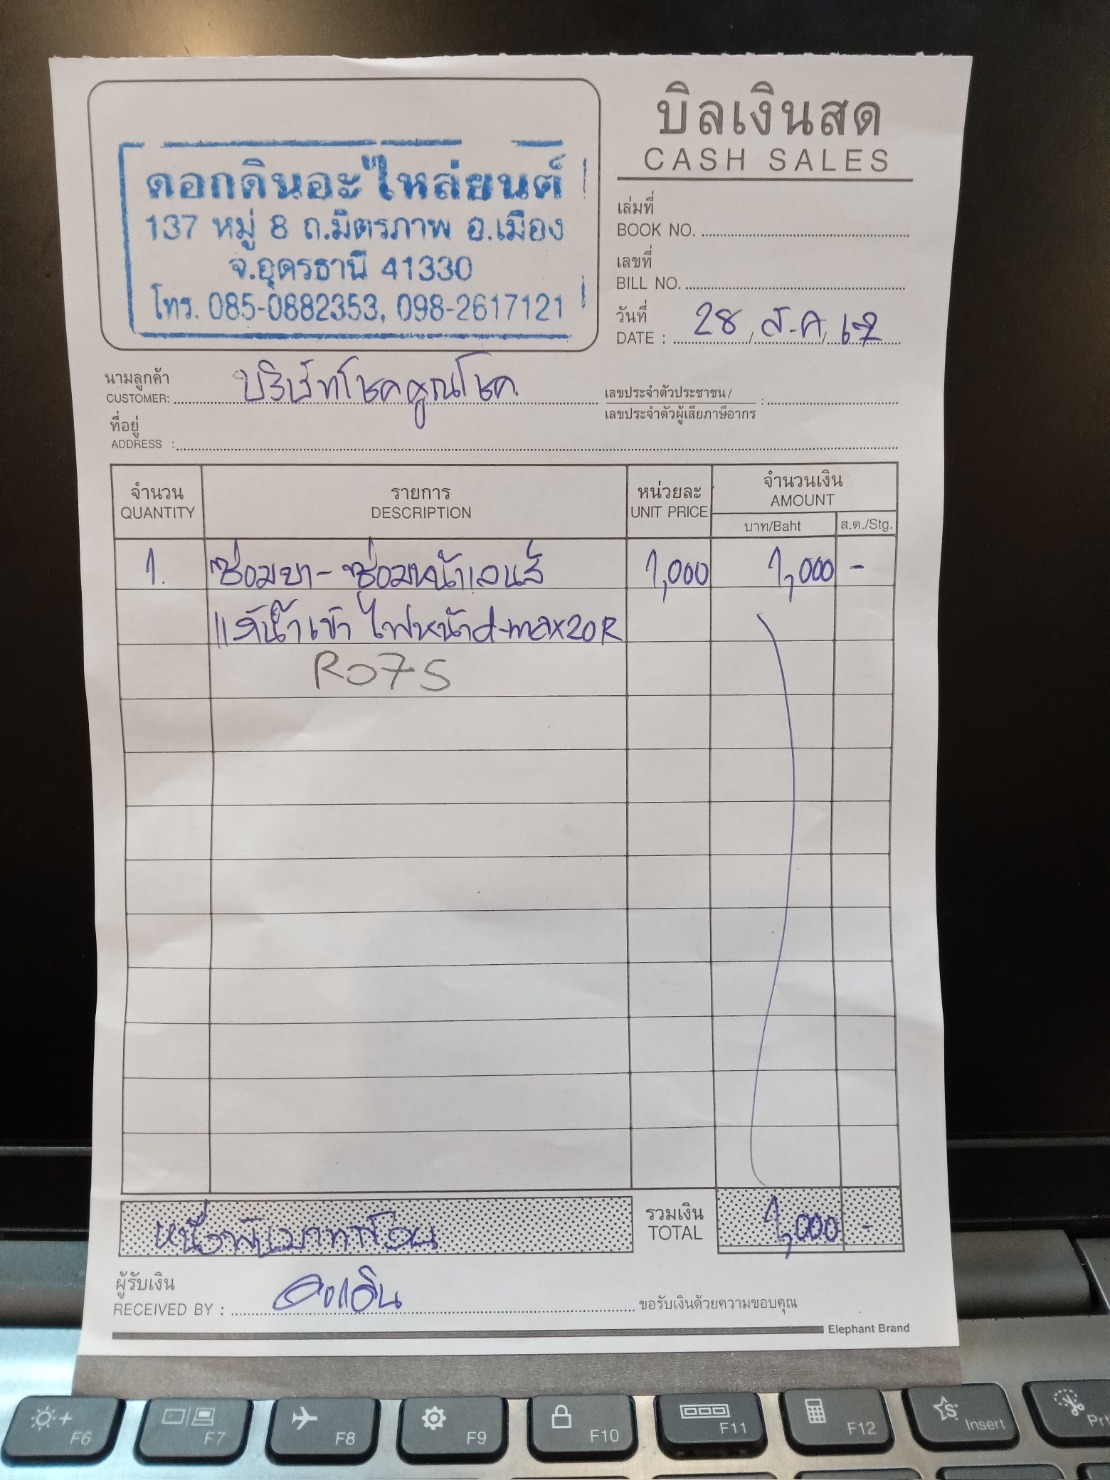 บิลเงินสด
CASH SALES
ดอกดินอะไหล่ยนต์
137 หมู่ 8 ถ.มิตรภาพ อ.เมือง
จ.อุดรธานี 41330
โทร. 085-0882353, 098-2617121
เล่มที่
BOOK NO.
เลขที่
BILL NO.
วันที่
DATE : 28 / ส.ค / 67
นามลูกค้า
CUSTOMER: บริษัทโชคคูณโชค
เลขประจำตัวประชาชน /
เลขประจำตัวผู้เสียภาษีอากร :
ที่อยู่
ADDRESS :
จำนวน รายการ หน่วยละ จำนวนเงิน
QUANTITY DESCRIPTION UNIT PRICE AMOUNT
บาท/Baht ส.ต./Stg.
1. ซ่อมขา - ซ่อมหน้าเลนส์ 1,000 1,000 -
แก้น้ำเข้า ไฟหน้า d-max20R
R075
หนึ่งพันบาทถ้วน รวมเงิน 1,000 -
TOTAL
ผู้รับเงิน
RECEIVED BY : ดอกดิน ขอรับเงินด้วยความขอบคุณ
Elephant Brand
F6 F7 F8 F9 F10 F11 F12 Insert Pr